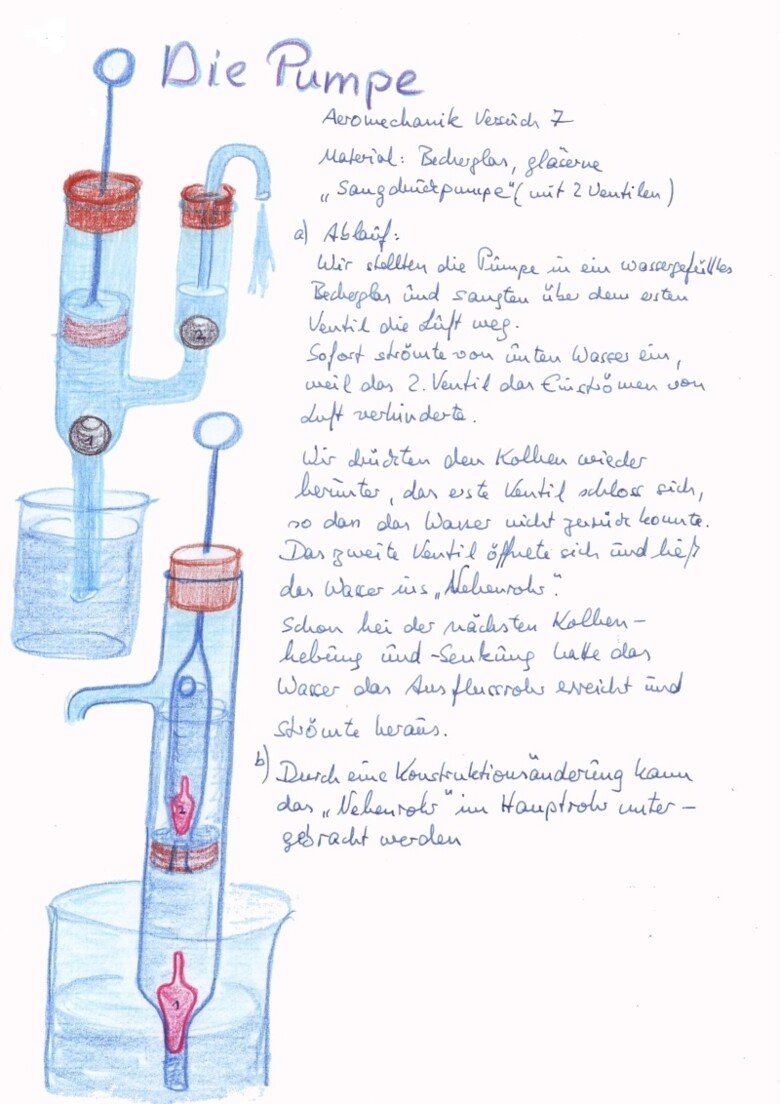 Die Pumpe
Aeromechanik Versuch 7
Material: Becherglas, gläserne
„Saugdruckpumpe" (mit 2 Ventilen)
a) Ablauf:
Wir stellten die Pumpe in ein wassergefülltes
Becherglas und saugten über dem ersten
Ventil die Luft weg.
Sofort strömte von unten Wasser ein,
weil das 2. Ventil das Einströmen von
Luft verhinderte.
Wir drückten den Kolben wieder
herunter, das erste Ventil schloss sich,
so dass das Wasser nicht zurück konnte.
Das zweite Ventil öffnete sich und ließ
das Wasser ins „Nebenrohr".
Schon bei der nächsten Kolben-
hebung und -Senkung hatte das
Wasser das Ausflussrohr erreicht und
strömte heraus.
b) Durch eine Konstruktionsänderung kann
das „Nebenrohr" im Hauptrohr unter-
gebracht werden
2
1
2
1